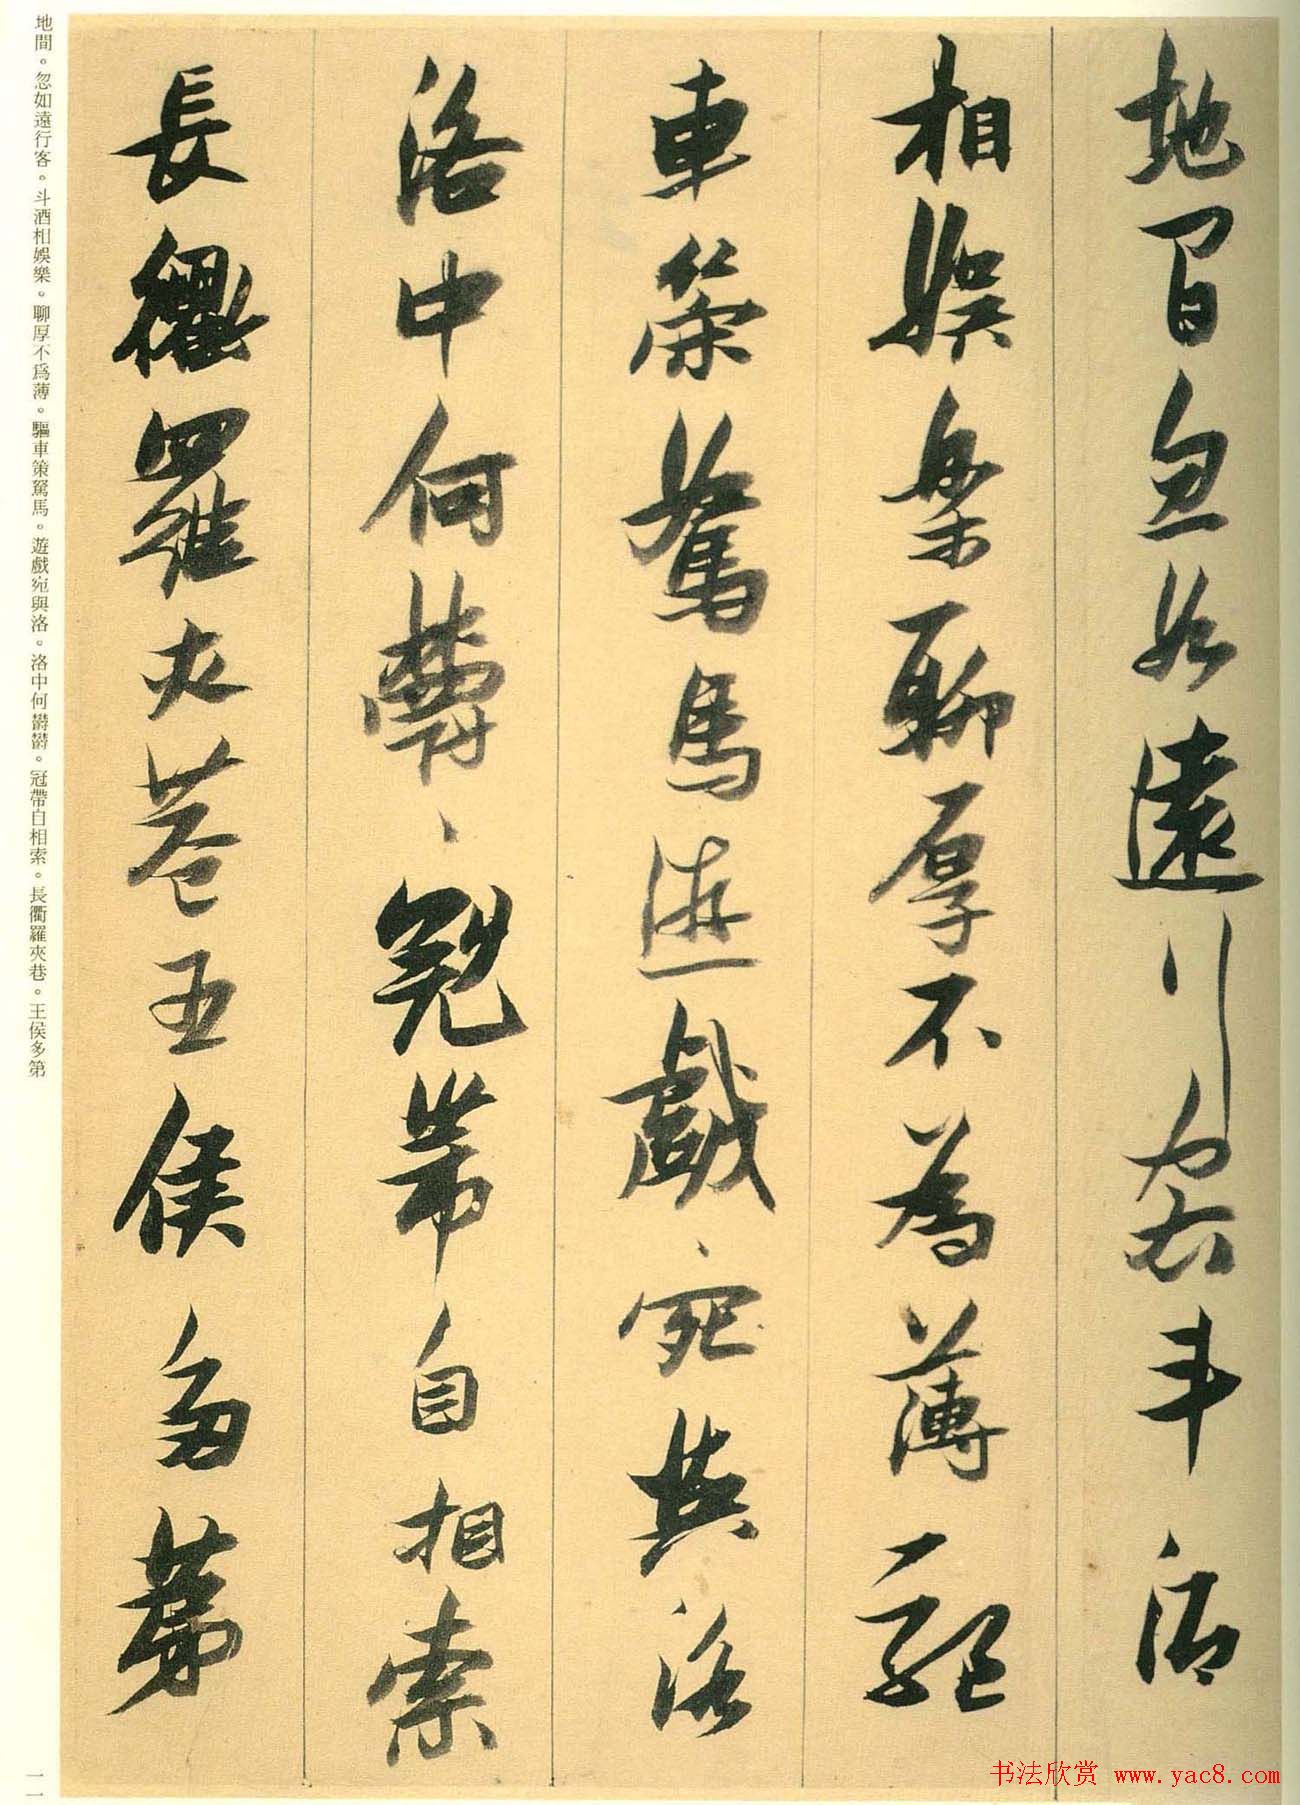 地間忽如遠行客斗酒
相娛樂聊厚不為薄驅
車策駑馬遊戲宛與洛
洛中何鬱々冠帶自相索
長衢羅夾巷王侯多第
地間。忽如遠行客。斗酒相娛樂。聊厚不爲薄。驅車策駑馬。遊戲宛與洛。洛中何鬱鬱。冠帶自相索。長衢羅夾巷。王侯多第
一一
书法欣赏 www.yac8.com